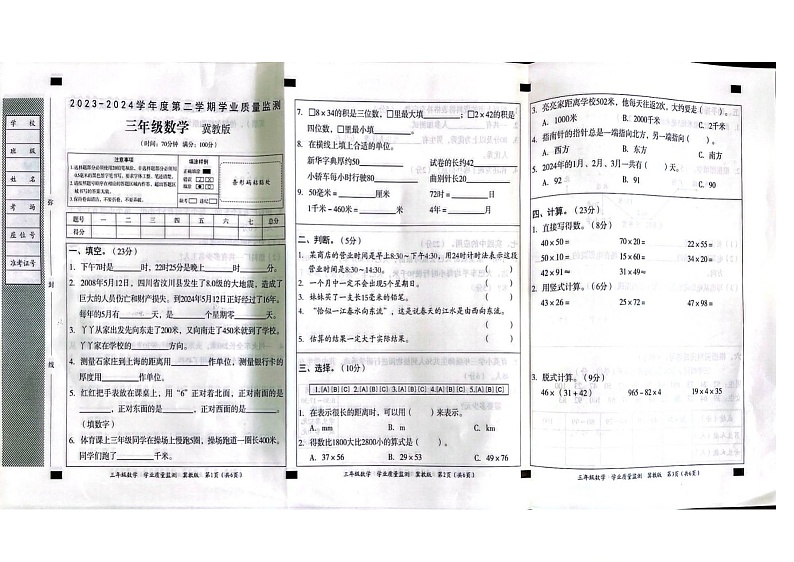 学 校
班 级
姓 名
考 场
座 位 号
准考证号
弥
封
线
2023-2024学年度第二学期学业质量监测
三年级数学 冀教版
（时间：70分钟 满分：100分）
注意事项
填涂样例
正确填涂
错误填涂
缺考
违纪
条形码粘贴处
题号 一 二 三 四 五 六 七 总分
得分
一、填空。（23分）
1. 下午7时是______时，22时25分是晚上______时______分。
2. 2008年5月12日，四川省汶川县发生了8.0级的大地震，造成了
巨大的人员伤亡和财产损失。到2024年5月12日正好经过了16年。
每年的5月有______天，是______个星期零______天。
3. 丫丫从家出发先向东走了200米，又向南走了450米就到了学校。
丫丫家在学校的______方向。
4. 测量石家庄到上海的距离用______作单位，测量银行卡的
厚度用______作单位。
5. 红红把手表放在课桌上，用“6”正对着北面，正对南面的是
______，正对东面的是______，正对西面的是______。
（填数字）
6. 体育课上三年级同学在操场上慢跑5圈，操场跑道一圈长400米，
同学们跑了______千米。
三年级数学 学业质量监测 冀教版 第1页（共6页）
7. □8×34的积是三位数，□里最大填______；□2×42的积是
四位数，□里最小填______。
8. 在横线上填上合适的单位。
新华字典厚约50______ 试卷的长约42______
小轿车每小时行驶80______ 曲别针长20______
9. 50毫米=______厘米 72时=______日
1千米－460米=______米 4年=______月
二、判断。（5分）
1. 某商店的营业时间是早上8:30~下午4:30，用24时计时法表示这段
营业时间是8:30~14:30。（ ）
2. 一个月中一定不会出现5个星期日。（ ）
3. 妹妹买了一支长15毫米的铅笔。（ ）
4. “恰似一江春水向东流”，这是说春天的江水是由西向东流。
（ ）
5. 估算的结果一定大于实际结果。（ ）
三、选择。（10分）
1. [A] [B] [C] 2. [A] [B] [C] 3. [A] [B] [C] 4. [A] [B] [C] 5. [A] [B] [C]
1. 在表示很长的距离时，可以用（ ）来表示。
A. mm B. m C. km
2. 得数比1800大比2800小的算式是（ ）。
A. 37×56 B. 29×53 C. 49×76
三年级数学 学业质量监测 冀教版 第2页（共6页）
3. 亮亮家距离学校502米，他每天往返2次，大约要走（ ）。
A. 1000米 B. 2000千米 C. 2千米
4. 指南针的指针总是一端指北方，另一端指（ ）。
A. 西方 B. 东方 C. 南方
5. 2024年的1月、2月、3月一共有（ ）天。
A. 92 B. 91 C. 90
四、计算。（23分）
1. 直接写得数。（8分）
40×50= 70×20= 22×55=
20×50= 15×60= 34×20=
42×91≈ 31×49≈ 62×49≈
2. 用竖式计算。（6分）
43×26= 25×72= 47×98=
3. 脱式计算。（9分）
46×（31+42） 965－82×4 19×4×35
三年级数学 学业质量监测 冀教版 第3页（共6页）